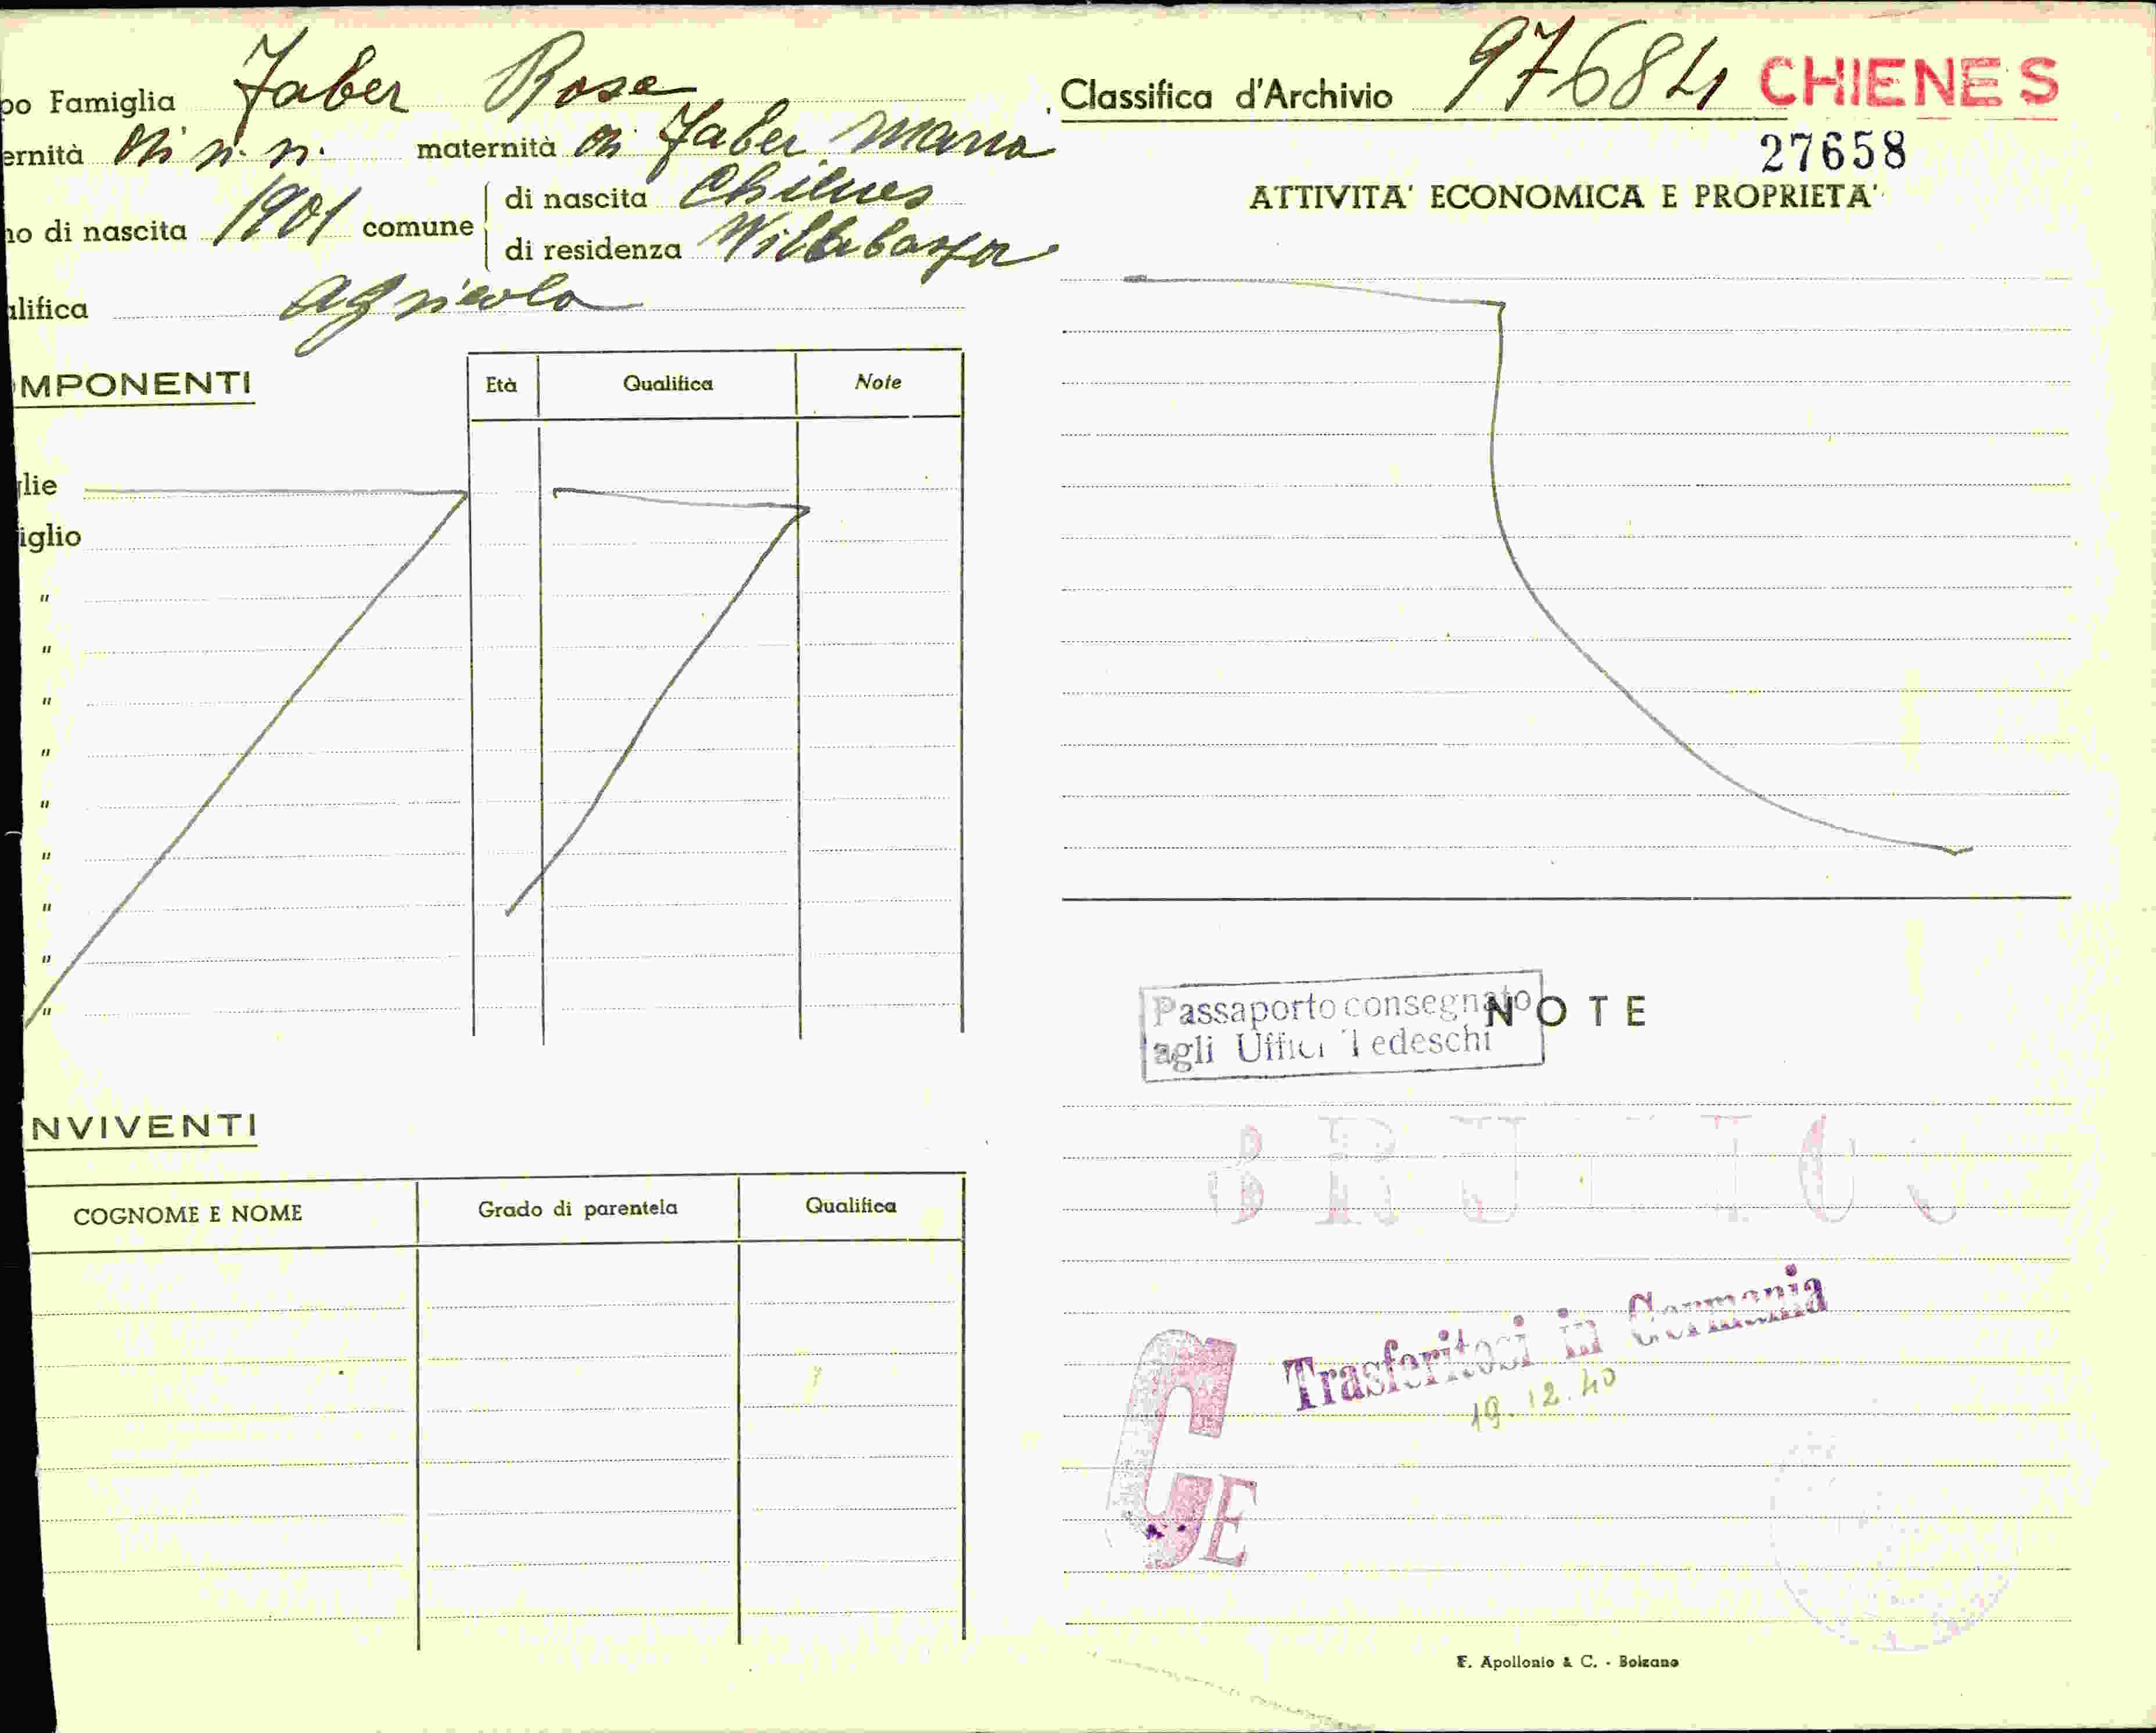 po Famiglia Faber Rosa
ernità di n. n. maternità di Faber Maria
no di nascita 1901 comune di nascita Chienes
di residenza Villabassa
alifica agricola
OMPONENTI
Età Qualifica Note
glie
iglio
"
"
"
"
"
"
"
"
"
NVIVENTI
COGNOME E NOME Grado di parentela Qualifica
Classifica d'Archivio 97684 CHIENES
27658
ATTIVITA' ECONOMICA E PROPRIETA'
NOTE
Passaporto consegnato
agli Uffici Tedeschi
Trasferitosi in Germania
19.12.40
GE
F. Apollonio & C. - Bolzano